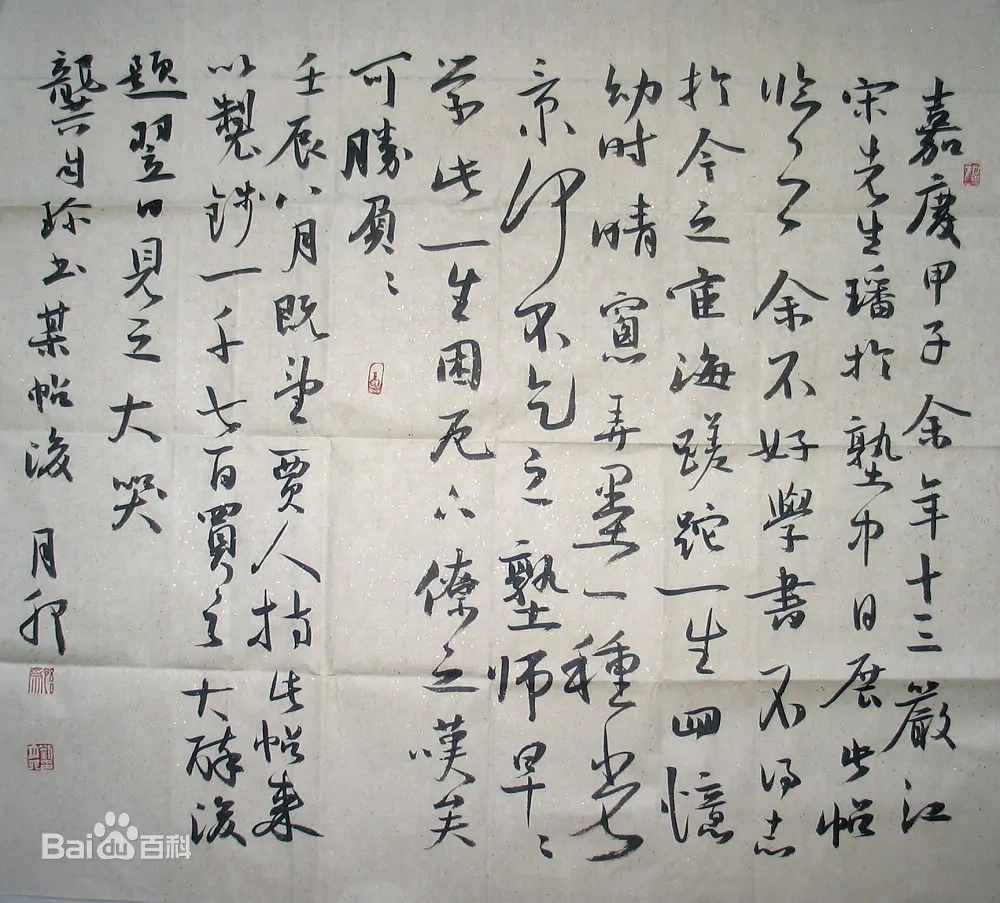 嘉慶甲子余年十三嚴江
宋先生璠於塾中日展此帖
臨之余不好學書不得志
於今之宦海蹉跎一生回憶
幼时晴窗弄墨一種光
景何不乞之塾师早〻
學此一生困厄下僚之嘆矣
可勝負〻
壬辰八月既望賈人持此帖来
以製錢一千七百買之大醉後
題翌日見之大哭
龔自珍书某帖後 月
Bai百科